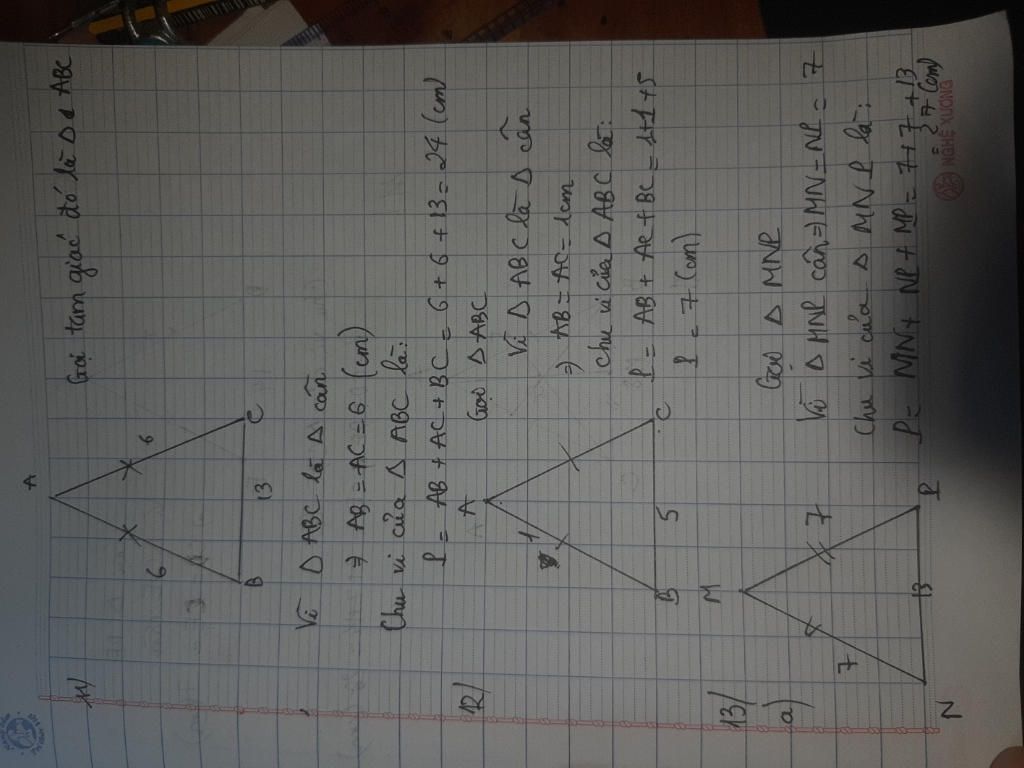 11/
Gọi tam giác đó là Δ ABC
A
6
6
B
13
C
Vì Δ ABC là Δ cân
⇒ AB = AC = 6 (cm)
Chu vi của Δ ABC là:
P = AB + AC + BC = 6 + 6 + 13 = 24 (cm)
12/
A
1
B
5
C
Gọi Δ ABC
Vì Δ ABC là Δ cân
⇒ AB = AC = 1cm
Chu vi của Δ ABC là:
P = AB + AC + BC = 1+1+5
P = 7 (cm)
13/
a)
M
7
7
N
13
P
Gọi Δ MNP
Vì Δ MNP cân ⇒ MN = NP = 7
Chu vi của Δ MNP là:
P = MN + NP + MP = 7 + 7 + 13
= 77 (cm)
NGHỄ XƯƠNG